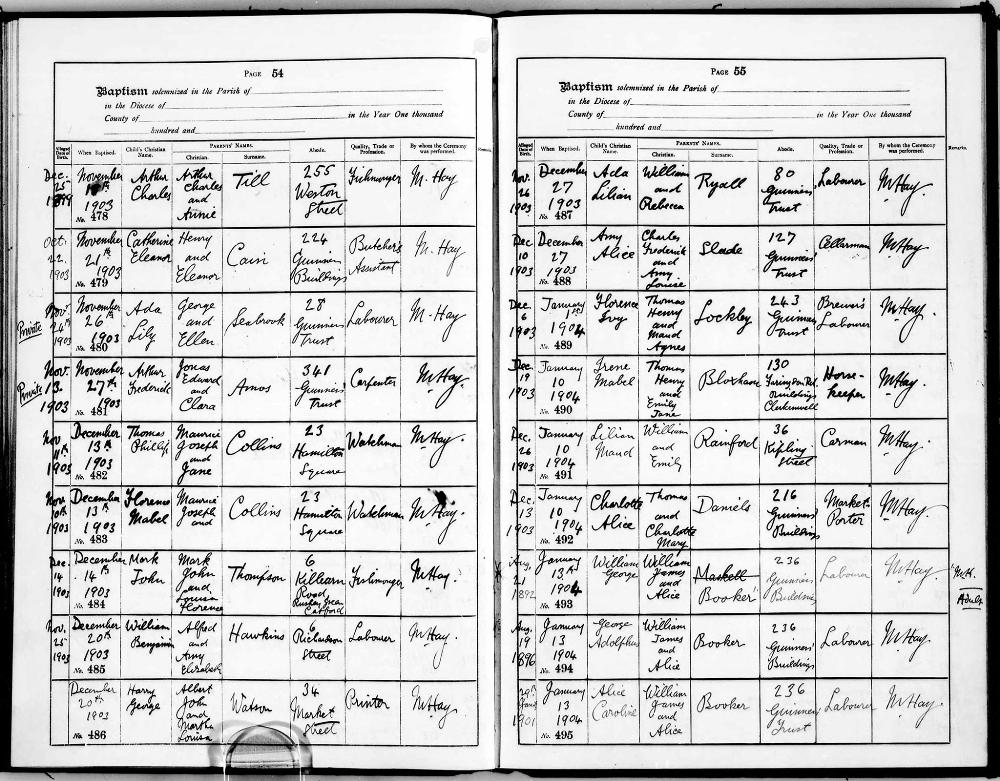 PAGE 54
Baptism solemnized in the Parish of
in the Diocese of
County of in the Year One thousand
hundred and
Alleged Date of Birth. When Baptised. Child's Christian Name. PARENTS' NAMES. Christian. Surname. Abode. Quality, Trade or Profession. By whom the Ceremony was performed.
Dec. 25 1899 November 1903 No. 478 Arthur Charles Arthur Charles and Annie Till 255 Weston Street Fishmonger M. Hay
Oct. 22. 1903 November 21st 1903 No. 479 Catherine Eleanor Henry and Eleanor Cain 224 Guinness Buildings Butcher's Assistant M. Hay
Private Nov. 24th 1903 November 26th 1903 No. 480 Ada Lily George and Ellen Seabrook 28 Guinness Trust Labourer M. Hay
Private Nov. 13. 1903 November 27th 1903 No. 481 Arthur Frederick Jonas Edward and Clara Amos 341 Guinness Trust Carpenter M. Hay.
Nov. 11th 1903 December 13th 1903 No. 482 Thomas Phillip Maurice Joseph and Jane Collins 23 Hamilton Square Watchman M. Hay.
Nov. 10th 1903 December 13th 1903 No. 483 Florence Mabel Maurice Joseph and Collins 23 Hamilton Square Watchman M. Hay.
Dec. 14 1903 December 14th 1903 No. 484 Mark John Mark John and Louisa Florence Thompson 6 Killearn Road Rushey Green Catford Fishmonger M. Hay.
Nov. 25 1903 December 20th 1903 No. 485 William Benjamin Alfred and Amy Elizabeth Hawkins 6 Richardson Street Labourer M. Hay.
December 20th 1903 No. 486 Harry George Albert John and Martha Louisa Watson 34 Market Street Printer M. Hay.
PAGE 55
Baptism solemnized in the Parish of
in the Diocese of
County of in the Year One thousand
hundred and
Alleged Date of Birth. When Baptised. Child's Christian Name. PARENTS' NAMES. Christian. Surname. Abode. Quality, Trade or Profession. By whom the Ceremony was performed. Remarks.
Nov. 26 1903 December 27 1903 No. 487 Ada Lilian William and Rebecca Ryall 80 Guinness Trust Labourer M. Hay.
Dec 10 1903 December 27 1903 No. 488 Amy Alice Charles Frederick and Amy Louise Slade 127 Guinness Trust Cellarman M. Hay
Dec. 6 1903 January 1st 1904 No. 489 Florence Ivy Thomas Henry and Maud Agnes Lockley 243 Guinness Trust Brewer's Labourer M. Hay.
Dec. 19 1903 January 10 1904 No. 490 Irene Mabel Thomas Henry and Emily Jane Bloxham 130 Faringdon Rd. Buildings Clerkenwell Horse-keeper M. Hay.
Dec. 26 1903 January 10 1904 No. 491 Lilian Maud William and Emily Rainford 36 Kipling Street Carman M. Hay.
Dec. 13 1903 January 10 1904 No. 492 Charlotte Alice Thomas and Charlotte Mary Daniels 216 Guinness Buildings Market-Porter M. Hay.
Aug. 21 1892 January 13th 1904 No. 493 William George William James and Alice Maskell Booker 236 Guinness Buildings Labourer M. Hay. M.H. Adult
Aug. 19 1896 January 13 1904 No. 494 George Adolphus William James and Alice Booker 236 Guinness Buildings Labourer M. Hay.
29th 1901 January 13 1904 No. 495 Alice Caroline William James and Alice Booker 236 Guinness Trust Labourer M. Hay.